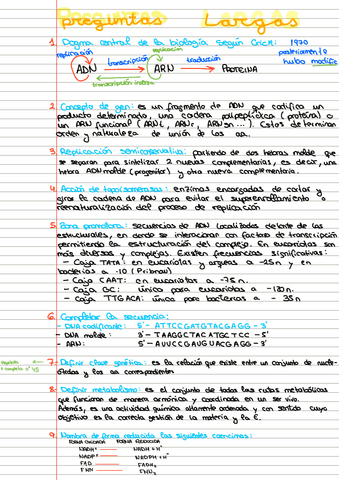 preguntas Largas
1. Dogma central de la biología según Crick: 1970
replicación
posteriormente hubo modific
transcripción traducción
ADN ARN PROTEINA
transcripción inversa
2. Concepto de gen: es un fragmento de ADN que codifica un
producto determinado, una cadena polipeptídica (proteína) o
un ARN funcional (ARNt, ARNr, ARNsn...). Estos determinan
orden y naturaleza de unión de los aa.
3. Replicación semiconservativa: partiendo de dos hebras molde que
se separan para sintetizar 2 nuevas complementarias, es decir, una
hebra ADN molde (progenitor) y otra nueva complementaria.
4. Acción de topoisomerasas: enzimas encargadas de cortar y
girar la cadena de ADN para evitar el superenrollamiento o
renaturalización del proceso de replicación
5. Zona promotora: secuencias de ADN localizadas delante de las
estructurales, en donde se interaccionan con factores de transcripción
permitiendo la estructuración del complejo. En eucariotas son
más diversos y complejas. Existen frecuencias significativas:
- Caja TATA: en eucariotas y arqueas a -25n y en
bacterias a -10 (Pribnow)
- Caja CAAT: en eucariotas a -75n.
- Caja GC: único para eucariotas a -180n.
- Caja TTGACA: único para bacterias a - 35n
6. Completar la secuencia:
- DNA codificante: 5'- ATTCCGATGTACGAGG - 3'
- DNA molde: 3'- TAAGGCTACATGCTCC - 5'
- ARN: 5'- AUUCCGAUGUACGAGG - 3'
7. Definir clave genética: es la relación que existe entre un conjunto de nucle-
ótidos y los aa correspondientes
8. Definir metabolismo: es el conjunto de todas las rutas metabólicas
que funcionan de manera armónica y coordinada en un ser vivo.
Además, es una actividad química altamente ordenada y con sentido cuyo
objetivo es la correcta gestión de la materia y la E.
9. Nombra de forma reducida las siguientes coenzimas:
FORMA OXIDADA FORMA REDUCIDA
NAD+ NADH + H+
NADP+ NADPH + H+
FAD FADH2
FMN FMNH2